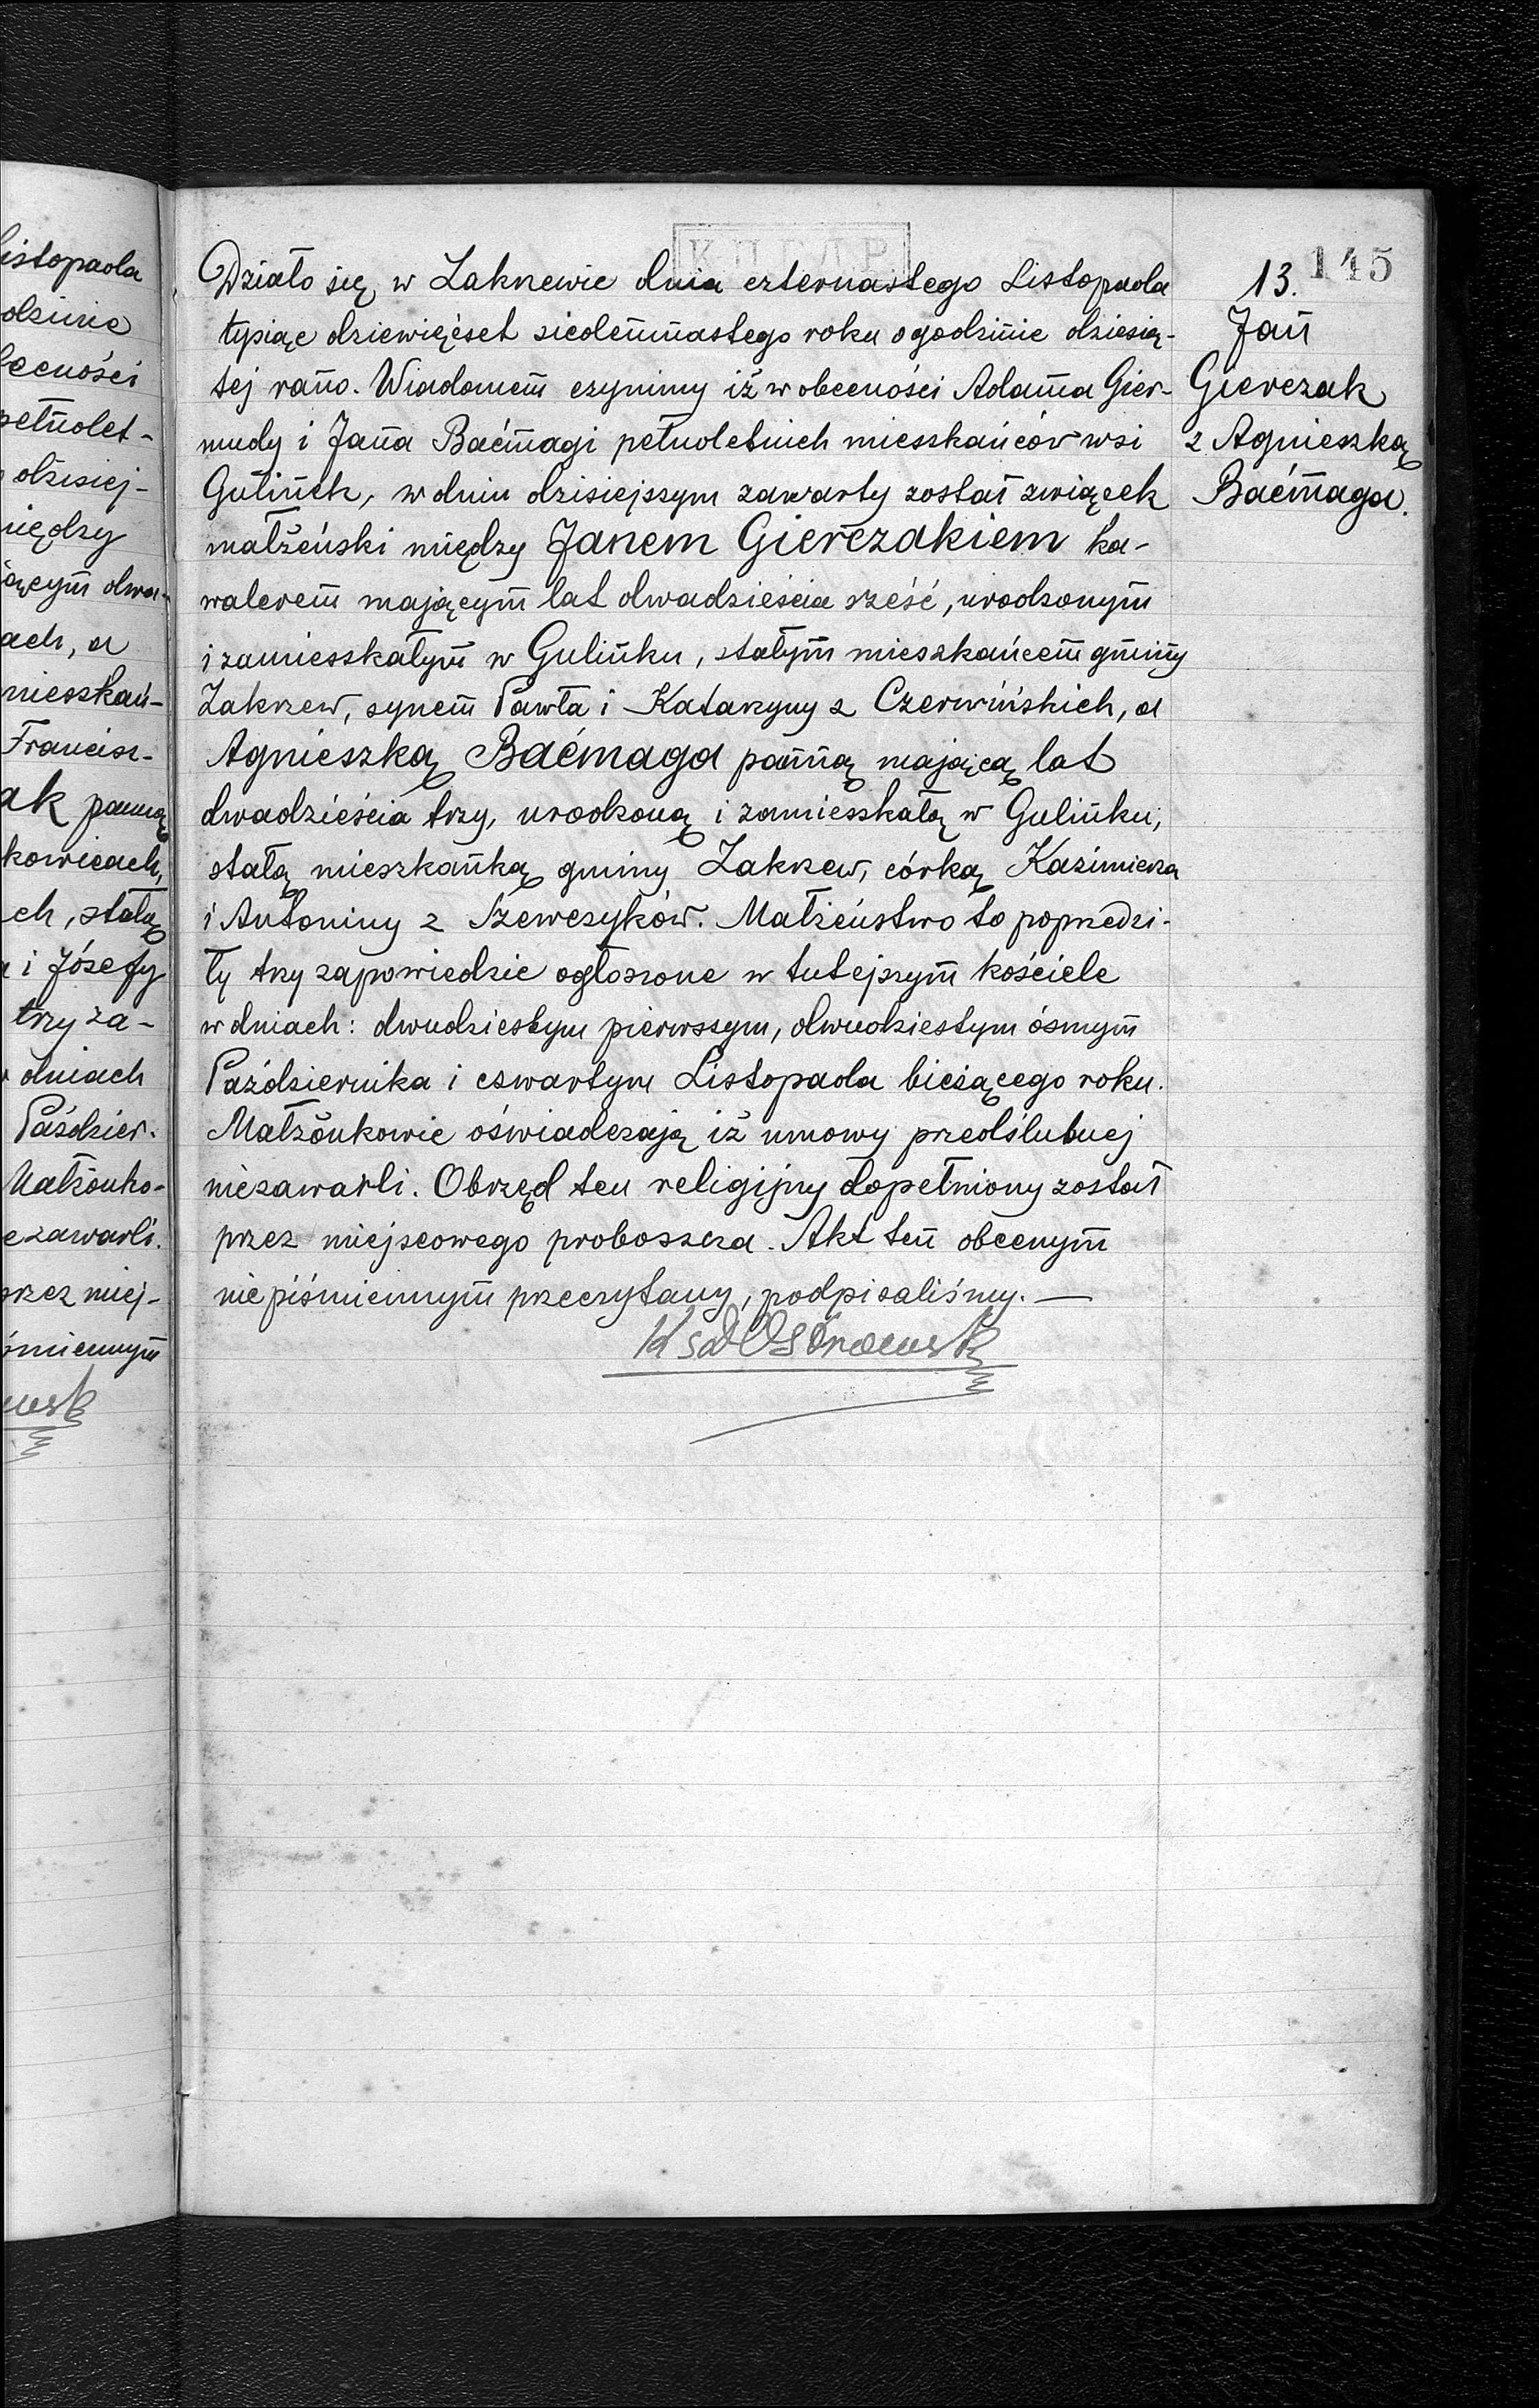 istopada
odzinie
becności
pełnolet-
dzisiej-
między
jącym dwa-
ach, a
mieszkań-
Francisz-
ak panną
kowicach,
ch, stałą
i Józefy
trzy za-
dniach
Paździer-
Małżonko-
ezawarli.
przez miej-
śmiennym
KПEAP
145
Działo się w Zakrzewie dnia czternastego Listopada
tysiąc dziewięćset siedemnastego roku o godzinie dziesią-
tej rano. Wiadomem czynimy iż w obecności Adama Gier-
mudy i Jana Baćmagi pełnoletnich mieszkańców wsi
Gulinek, w dniu dzisiejszym zawarty został związek
małżeński między Janem Gierczakiem ka-
walerem mającym lat dwadzieścia sześć, urodzonym
i zamieszkałym w Gulinku, stałym mieszkańcem gminy
Zakrzew, synem Pawła i Katarzyny z Czerwińskich, a
Agnieszką Baćmaga panną mającą lat
dwadzieścia trzy, urodzoną i zamieszkałą w Gulinku,
stałą mieszkanką gminy Zakrzew, córką Kazimierza
i Antoniny z Szewczyków. Małżeństwo to poprzedzi-
ły trzy zapowiedzie ogłoszone w tutejszym kościele
w dniach: dwudziestym pierwszym, dwudziestym ósmym
Października i czwartym Listopada bieżącego roku.
Małżonkowie oświadczają iż umowy przedślubnej
niezawarli. Obrzęd ten religijny dopełniony został
przez miejscowego proboszcza. Akt ten obecnym
niepiśmiennym przeczytany, podpisaliśmy. —
13.
Jan
Gierczak
z Agnieszką
Baćmaga.